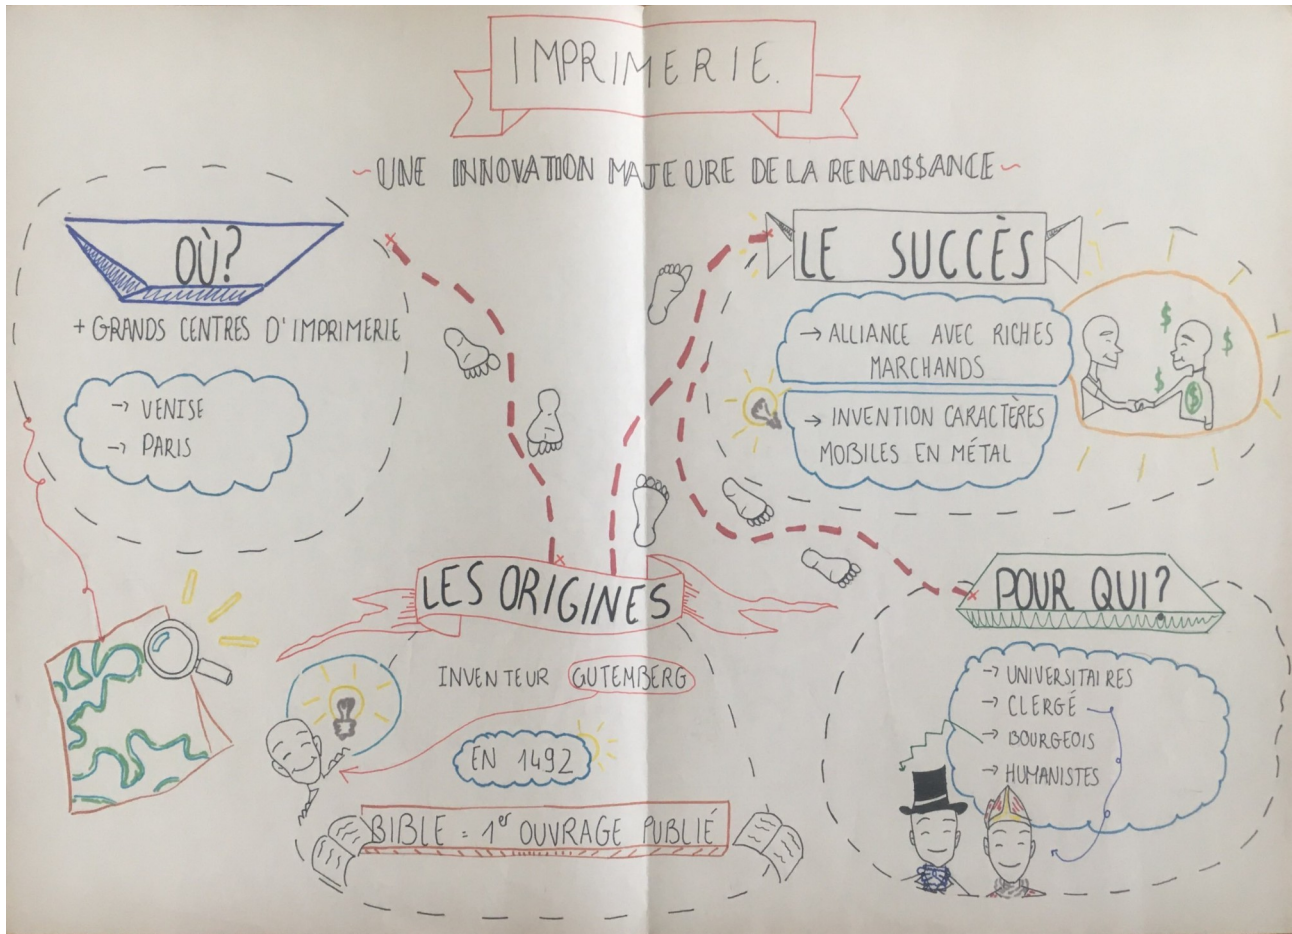 IMPRIMERIE.
~UNE INNOVATION MAJEURE DE LA RENAI$$ANCE~
OÙ?
+ GRANDS CENTRES D'IMPRIMERIE
→ VENISE
→ PARIS
LE SUCCÈS
→ ALLIANCE AVEC RICHES
MARCHANDS
→ INVENTION CARACTÈRES
MOBILES EN MÉTAL
$ $ $ $
LES ORIGINES
INVENTEUR GUTEMBERG
EN 1492
BIBLE = 1er OUVRAGE PUBLIÉ
POUR QUI?
→ UNIVERSITAIRES
→ CLERGÉ
→ BOURGEOIS
→ HUMANISTES